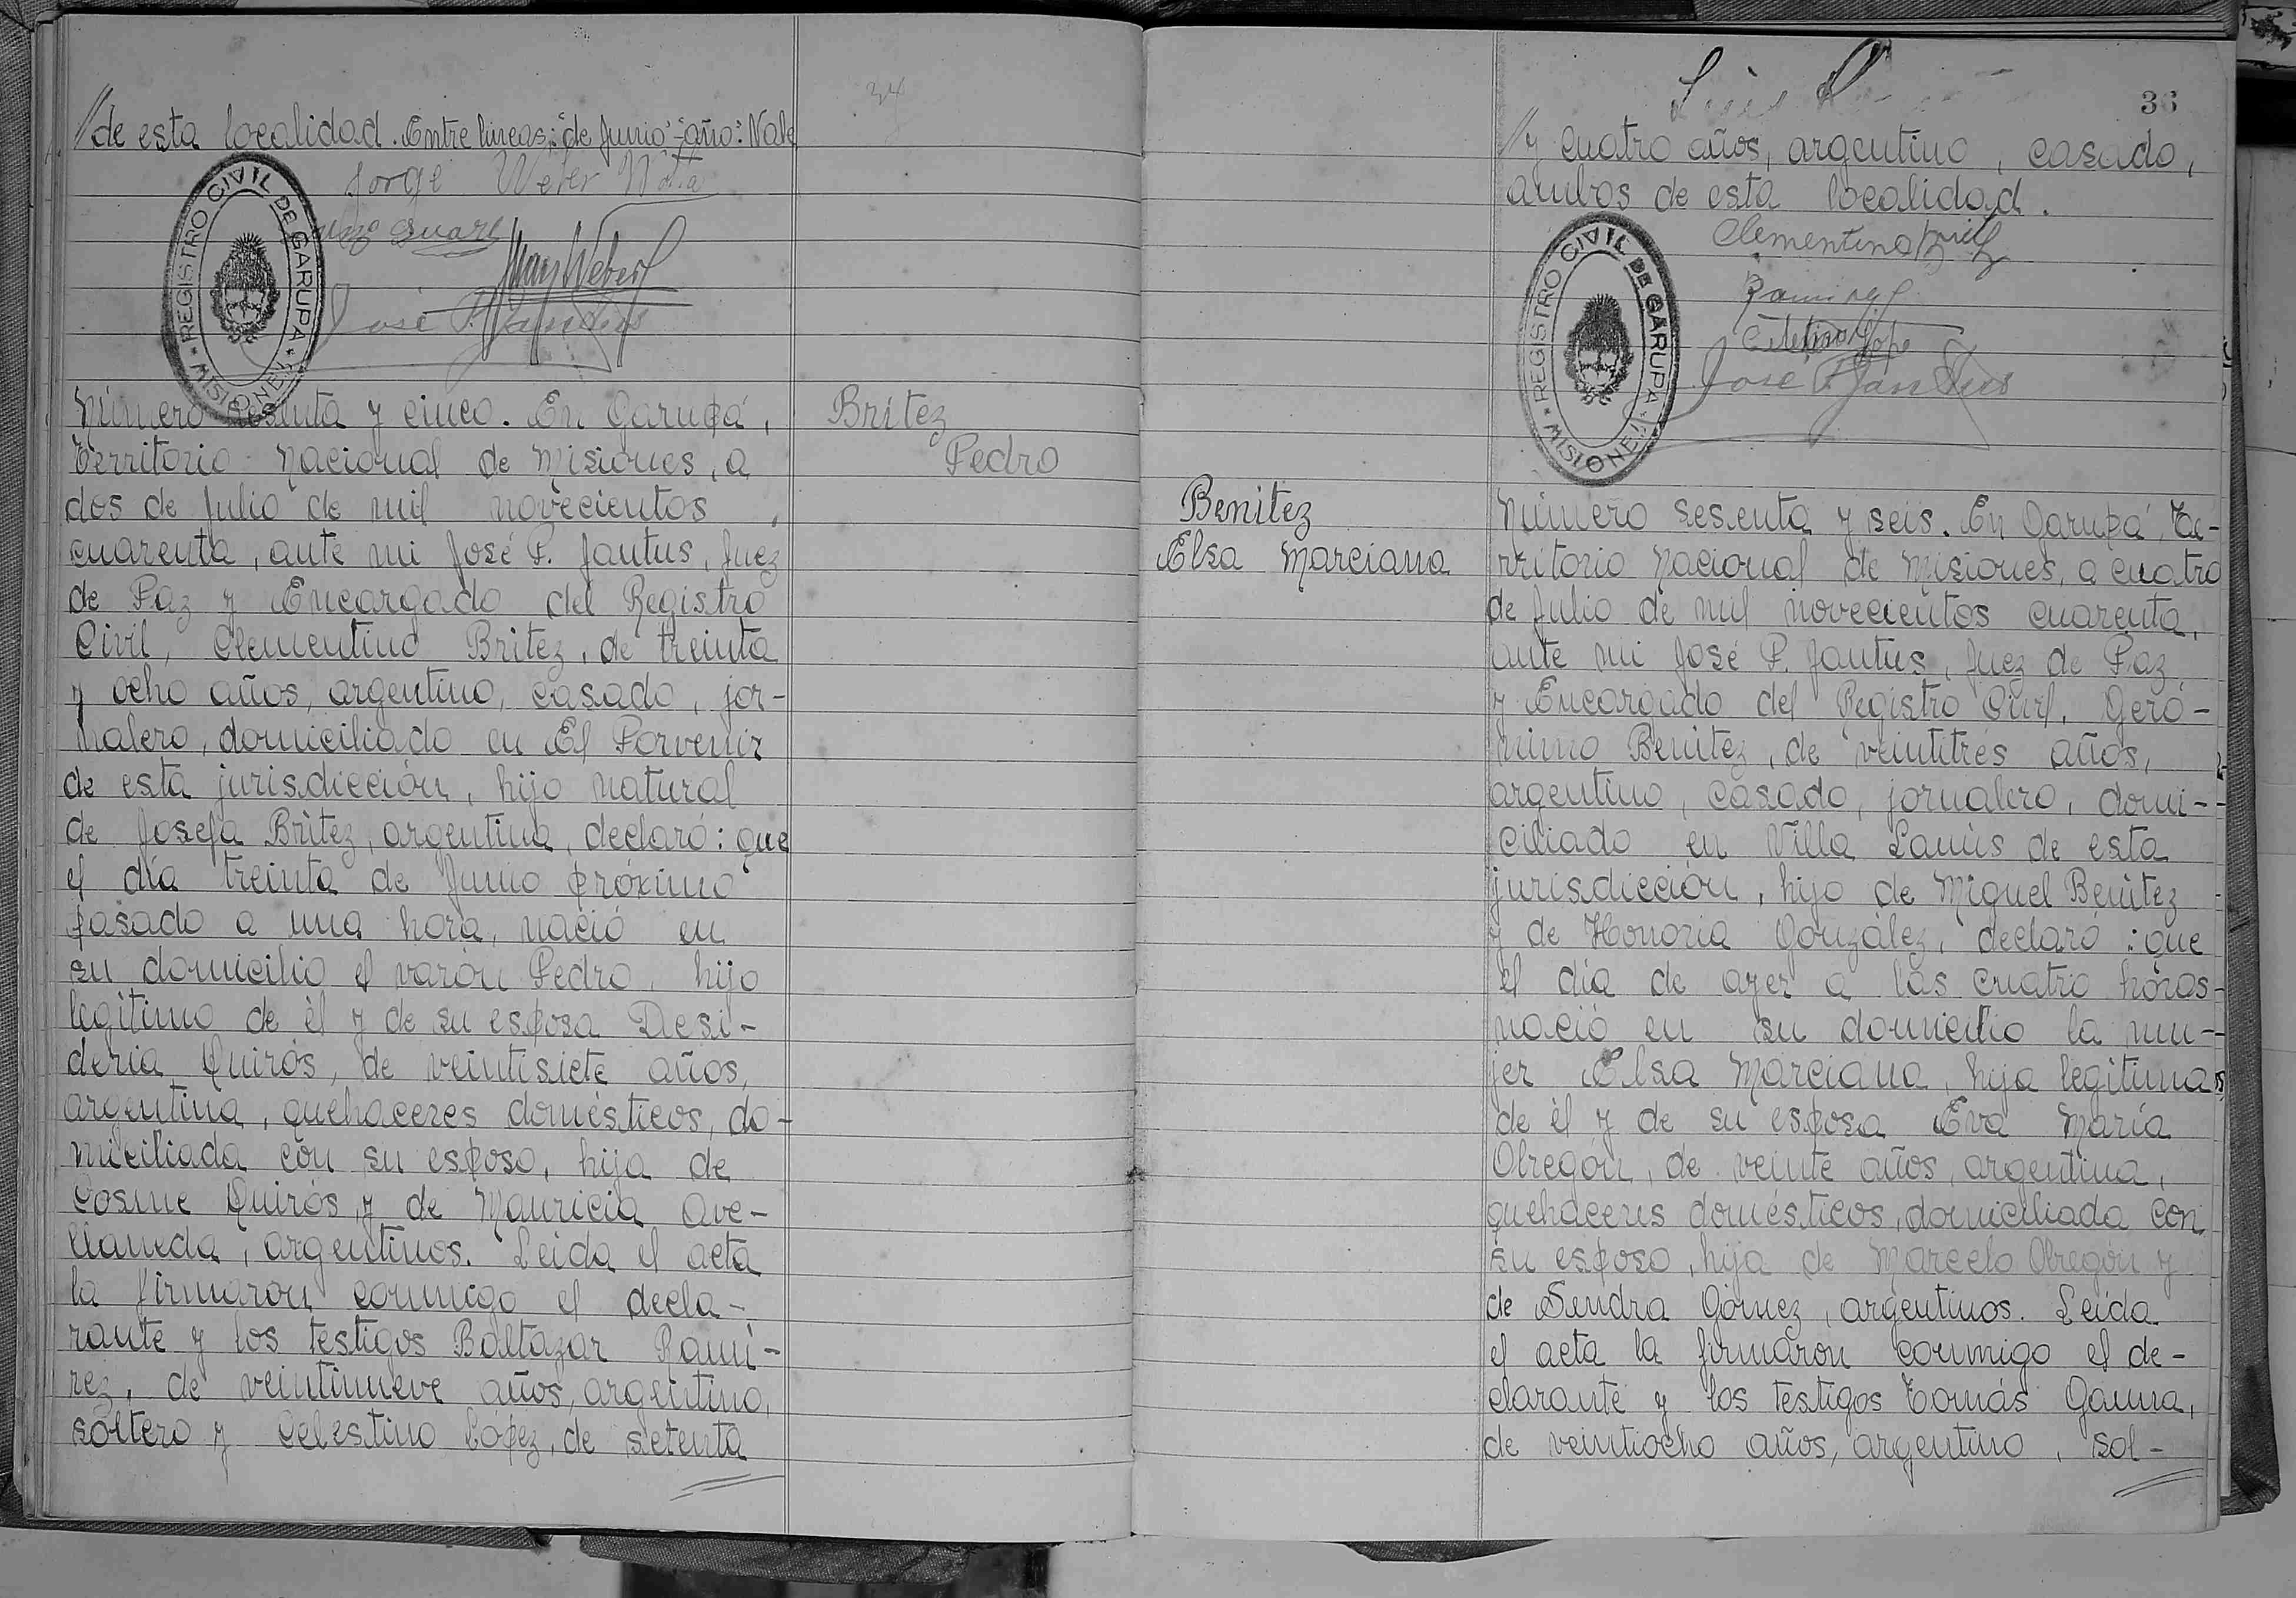 //de esta localidad. Entre líneas: "de Junio"-"año": Vale
Jorge Weber
REGISTRO CIVIL DE GARUPA
* MISIONES *
Max Weber
José P. Jantus
Número sesenta y cinco. En Garupá,
Territorio Nacional de Misiones, a
dos de Julio de mil novecientos
cuarenta, ante mi José P. Jantus, Juez
de Paz y Encargado del Registro
Civil, Clementino Britez, de treinta
y ocho años, argentino, casado, jor-
nalero, domiciliado en El Porvenir
de esta jurisdicción, hijo natural
de Josefa Britez, argentina, declaró: que
el día treinta de Junio próximo
pasado a una hora, nació en
su domicilio el varón Pedro, hijo
legítimo de él y de su esposa Desi-
deria Quirós, de veintisiete años,
argentina, quehaceres domésticos, do-
miciliada con su esposo, hija de
Cosme Quirós y de Mauricia Ave-
llaneda, argentinos. Leida el acta
la firmaron conmigo el decla-
rante y los testigos Baltazar Rami-
rez, de veintinueve años, argentino,
soltero y Celestino López, de setenta
34
Britez
Pedro
Benitez
Elsa Marciana
36
//y cuatro años, argentino, casado,
ambos de esta localidad.
Clementino Britez
REGISTRO CIVIL DE GARUPA
* MISIONES *
José P. Jantus
Número sesenta y seis. En Garupá, Te-
rritorio Nacional de Misiones, a cuatro
de Julio de mil novecientos cuarenta,
ante mi José P. Jantus, Juez de Paz
y Encargado del Registro Civil, Geró-
nimo Benitez, de veintitrés años,
argentino, casado, jornalero, domi-
ciliado en Villa Lanús de esta
jurisdicción, hijo de Miguel Benitez
y de Honoria González, declaró: que
el día de ayer a las cuatro horas
nació en su domicilio la mu-
jer Elsa Marciana, hija legítima
de él y de su esposa Eva María
Obregón, de veinte años, argentina,
quehaceres domésticos, domiciliada con
su esposo, hija de Marcelo Obregón y
de Sendra Gómez, argentinos. Leída
el acta la firmaron conmigo el de-
clarante y los testigos Tomás Gauna,
de veintiocho años, argentino, sol-